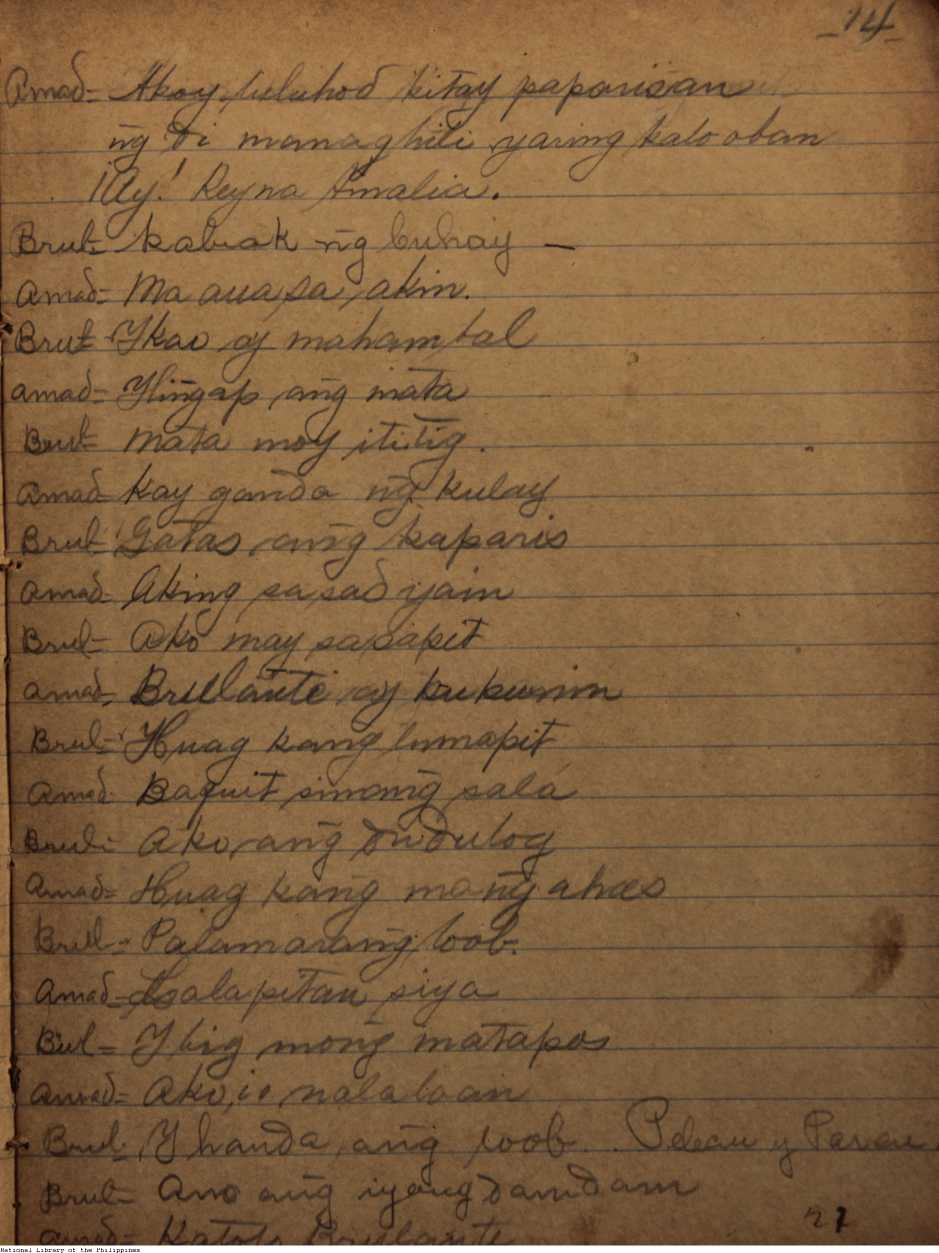 -14-
Amad= Akoy luluhod kitay paparisan
ng di managhili yaring kalooban
¡Ay! Reyna Amalia.
Brul= kabiak ng buhay —
Amad= Ma aua sa akin.
Brul= Ykao ay mahambal
Amad= Ylingap ang mata
Brul= Mata moy ititig.
Amad- Kay ganda ng kulay
Brul- Gatas ang kaparis
Amad- Aking sasadyain
Brul- Ako may sasapit
Amad- Brullante ay kukunin
Brul- Huag kang lumapit
Amad- Baquit sinong sala
Brul- Ako ang dudulog
Amad= Huag kang mangahas
Brull- Palamarang loob.
Amad- lalapitan siya
Brul= Ybig mong matapos
Amad= Ako, io nalalaan
Brul- Yhanda ang loob.. Pelean y
Brul= Ano ang iyong damdam
Amad= Brullante
27
National Library of the Philippines